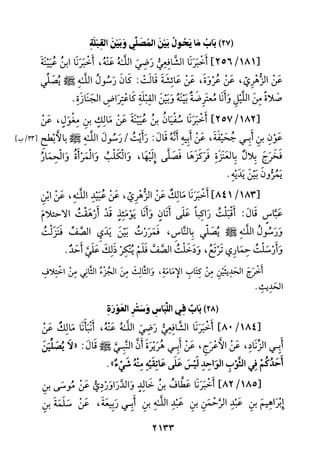 (٢٧) بَابُ مَا يَحُولُ بَيْنَ المُصَلِّي وَبَيْنَ القِبْلَةِ
[٢٥٦/١٨١] أَخْبَرَنَا الشَّافِعِيُّ رَضِيَ اللَّهُ عَنْهُ، أَخْبَرَنَا ابنُ عُيَيْنَةَ
عَنِ الزُّهْرِيِّ، عَنْ عُرْوَةَ، عَنْ عَائِشَةَ قَالَتْ: كَانَ رَسُولُ اللَّهِ ﷺ يُصَلِّي
صَلَاةً مِنَ اللَّيْلِ وَأَنَا مُعْتَرِضَةٌ بَيْنَهُ وَبَيْنَ القِبْلَةِ كَاعْتِرَاضِ الجَنَازَةِ.
[٢٥٧/١٨٢] أَخْبَرَنَا سُفْيَانُ بْنُ عُيَيْنَةَ عَنْ مَالِكِ بنِ مِغْوَلٍ، عَنْ
عَوْنِ بنِ أَبِي جُحَيْفَةَ، عَنْ أَبِيهِ أَنَّهُ قَالَ: رَأَيْتُ رَسُولَ اللَّهِ ﷺ بِالأَبْطَحِ [٣٣/ب]
خَرَجَ بِلَالٌ بِالعَنَزَةِ فَرَكَزَهَا فَصَلَّى إِلَيْهَا، وَالْكَلْبُ وَالْمَرْأَةُ وَالْحِمَارُ
يَمُرُّونَ بَيْنَ يَدَيْهِ.
[٨٤١/١٨٣] أَخْبَرَنَا مَالِكٌ عَنِ الزُّهْرِيِّ، عَنْ عُبَيْدِ اللَّهِ، عَنِ ابْنِ
عَبَّاسٍ قَالَ: أَقْبَلْتُ رَاكِباً عَلَى أَتَانٍ وَأَنَا يَوْمَئِذٍ قَدْ رَاهَقْتُ الاحتلامَ
وَرَسُولُ اللَّهِ ﷺ يُصَلِّي بِالنَّاسِ، فَمَرَرْتُ بَيْنَ يَدَيِ الصَّفِّ فَنَزَلْتُ
وَأَرْسَلْتُ حِمَارِي يَرْتَعُ، وَدَخَلْتُ الصَّفَّ فَلَمْ يُنْكِرْ ذَلِكَ عَلَيَّ أَحَدٌ.
أَخْرَجَ الحَدِيثَيْنِ مِنَ كِتَابِ الإِمَامَةِ، وَالثَّالِثَ مِنَ الجُزْءِ الثَّانِي مِنَ اخْتِلَافِ
الحَدِيثِ.
(٢٨) بَابٌ فِي اللِّبَاسِ وَسَتْرِ العَوْرَةِ
[٨٠/١٨٤] أَخْبَرَنَا الشَّافِعِيُّ رَضِيَ اللَّهُ عَنْهُ، أَنْبَأَنَا مَالِكٌ عَنْ
أَبِي الزِّنَادِ، عَنِ الأَعْرَجِ، عَنْ أَبِي هُرَيْرَةَ أَنَّ النَّبِيَّ ﷺ قَالَ: «لَا يُصَلِّيَنَّ
أَحَدُكُمْ فِي الثَّوْبِ الوَاحِدِ لَيْسَ عَلَى عَاتِقَيْهِ مِنْهُ شَيْءٌ».
[٨٢/١٨٥] أَخْبَرَنَا عَطَّافُ بْنُ خَالِدٍ وَالدَّرَاوَرْدِيُّ عَنْ مُوسَى بنِ
إِبْرَاهِيمَ بنِ عَبْدِ الرَّحْمَنِ بنِ عَبْدِ اللَّهِ بنِ أَبِي رَبِيعَةَ، عَنْ سَلَمَةَ بنِ
٢١٣٣